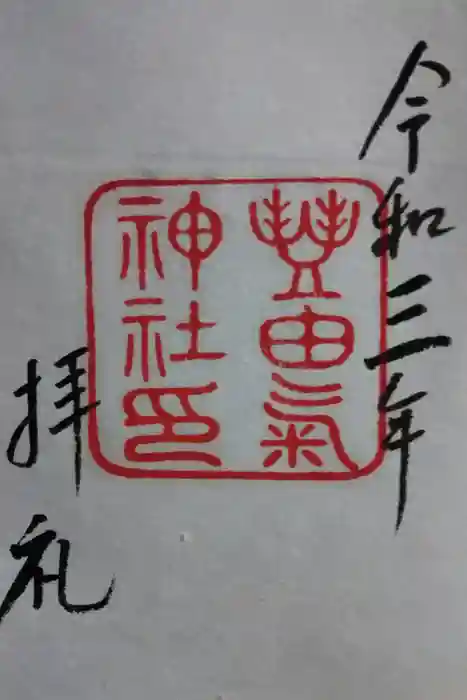 令和三年
豐由氣
神社印
拝礼